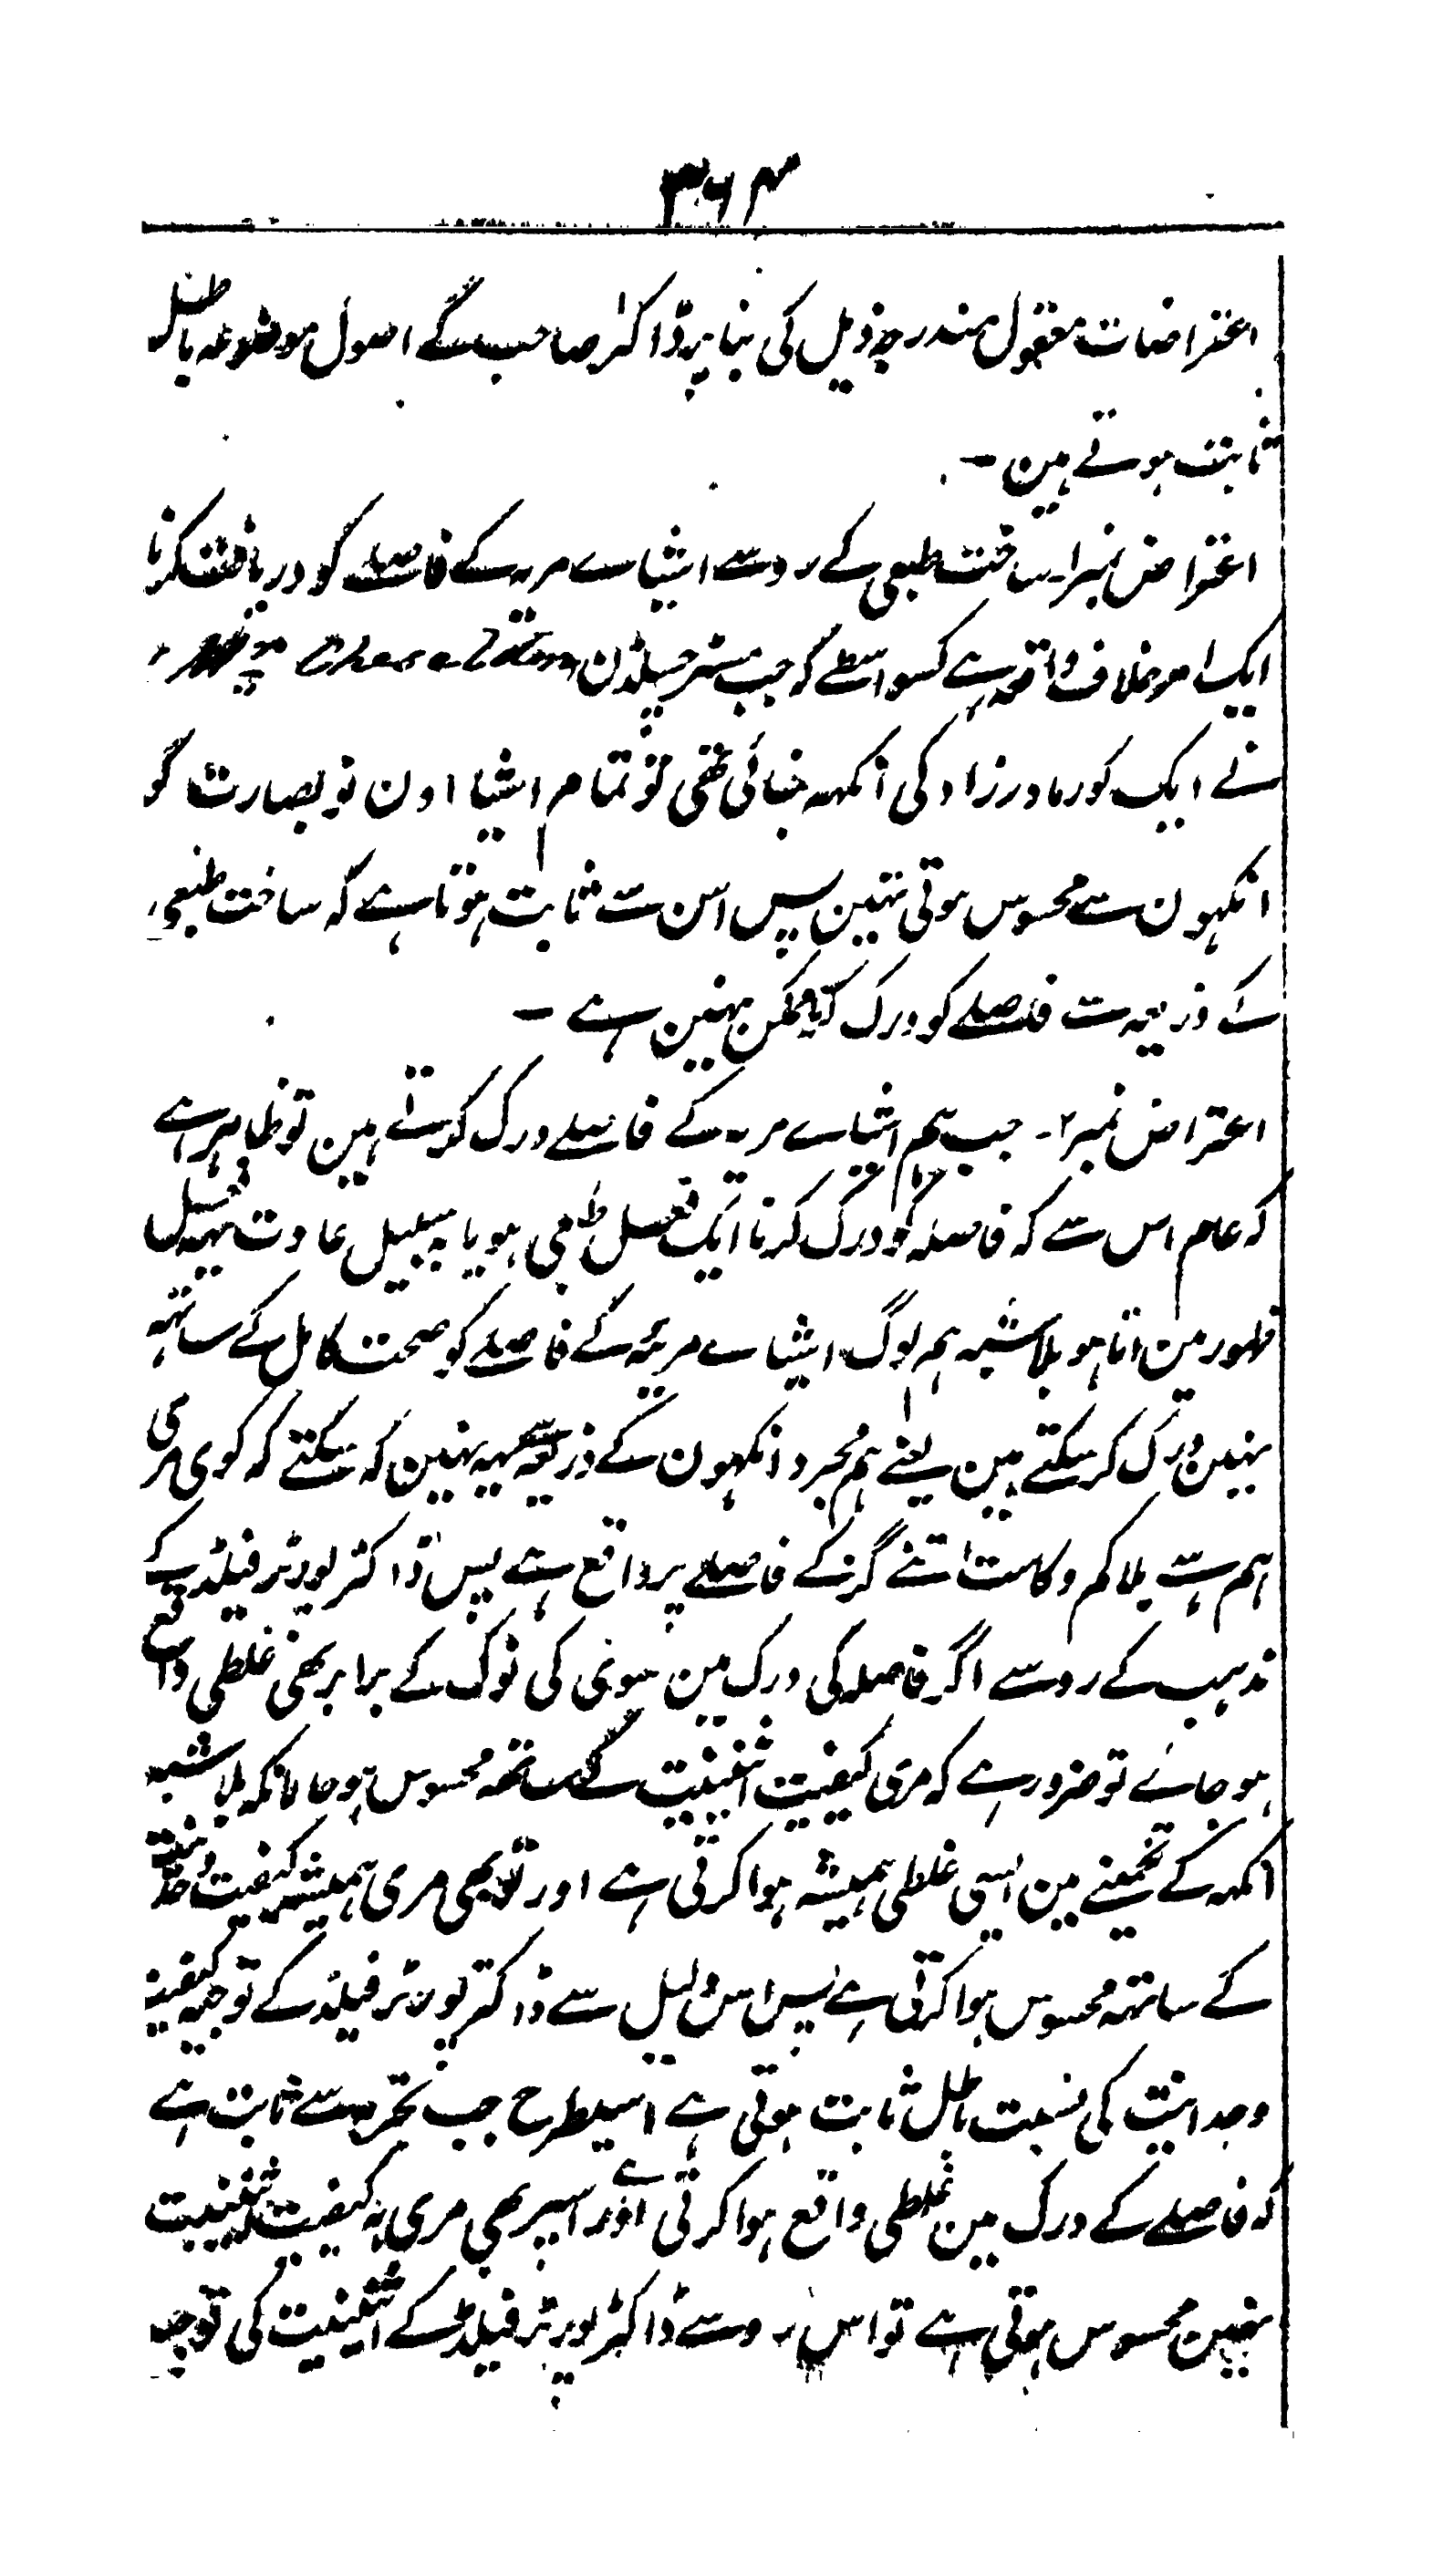 ۳۶۴
اعتراضات معقول مندرجہ ذیل کی بنا پر ڈاکٹر صاحب کے اصول موضوعہ باطل
ثابت ہوتے ہین ۔
اعتراض نمبر ۱۔ ساخت طبعی کے رو سے اشیاے مریہ کے فاصلے کو دریافت کرنا
ایک امر خلاف واقعہ ہے کسواسطے کہ جب مسٹر چسیلڈن Cheselden
نے ایک کور مادرزاد کی آنکہہ بنائی تھی تو تمام اشیا اون نو بصارت کو
انکہون سے محسوس ہوتی تہین پس اس سے ثابت ہوتا ہے کہ ساخت طبعی
کے ذریعہ سے فاصلے کو درک کرنا ممکن نہین ہے ۔
اعتراض نمبر ۲۔ جب ہم اشیاے مریہ کے فاصلے درک کرتے ہین تو ظاہر ہے
کہ عام اس سے کہ فاصلہ کو درک کرنا ایک فعل طبعی ہو یا بسبیل عادت یہہ فعل
ظہور مین اتا ہو بلا شبہ ہم لوگ اشیاے مریہ کے فاصلے کو صحت کامل کے ساتہہ
نہین درک کر سکتے ہین یعنے ہم مجرد انکہون کے ذریعہ سے یہہ نہین کہ سکتے کہ کوی مری
ہم سے بلا کم و کاست اتنے گز کے فاصلے پر واقع ہے پس ڈاکٹر پورٹر فیلڈ کے
مذہب کے رو سے اگر فاصلہ کی درک مین سوئی کی نوک کے برابر بھی غلطی واقع
ہو جائے تو ضرور ہے کہ مری کیفیت اثنینیت کے ساتھہ محسوس ہو حالانکہ بلا شبہ
آنکہہ کے تخمینے مین ایسی غلطی ہمیشہ ہوا کرتی ہے اور تو بھی مری ہمیشہ کیفیت وحدانیت
کے ساتہہ محسوس ہوا کرتی ہے پس اس دلیل سے ڈاکتر پورٹر فیلڈ کے توجیہ کیفیت
وحدانیت کی نسبت باطل ثابت ہوتی ہے اسیطرح جب تجربہ سے ثابت ہے
کہ فاصلے کے درک مین غلطی واقع ہوا کرتی ہے اور اسپر بھی مری بہ کیفیت اثنینیت
نہین محسوس ہوتی ہے تو اس رو سے ڈاکٹر پورٹر فیلڈ کے اثنینیت کی توجیہ